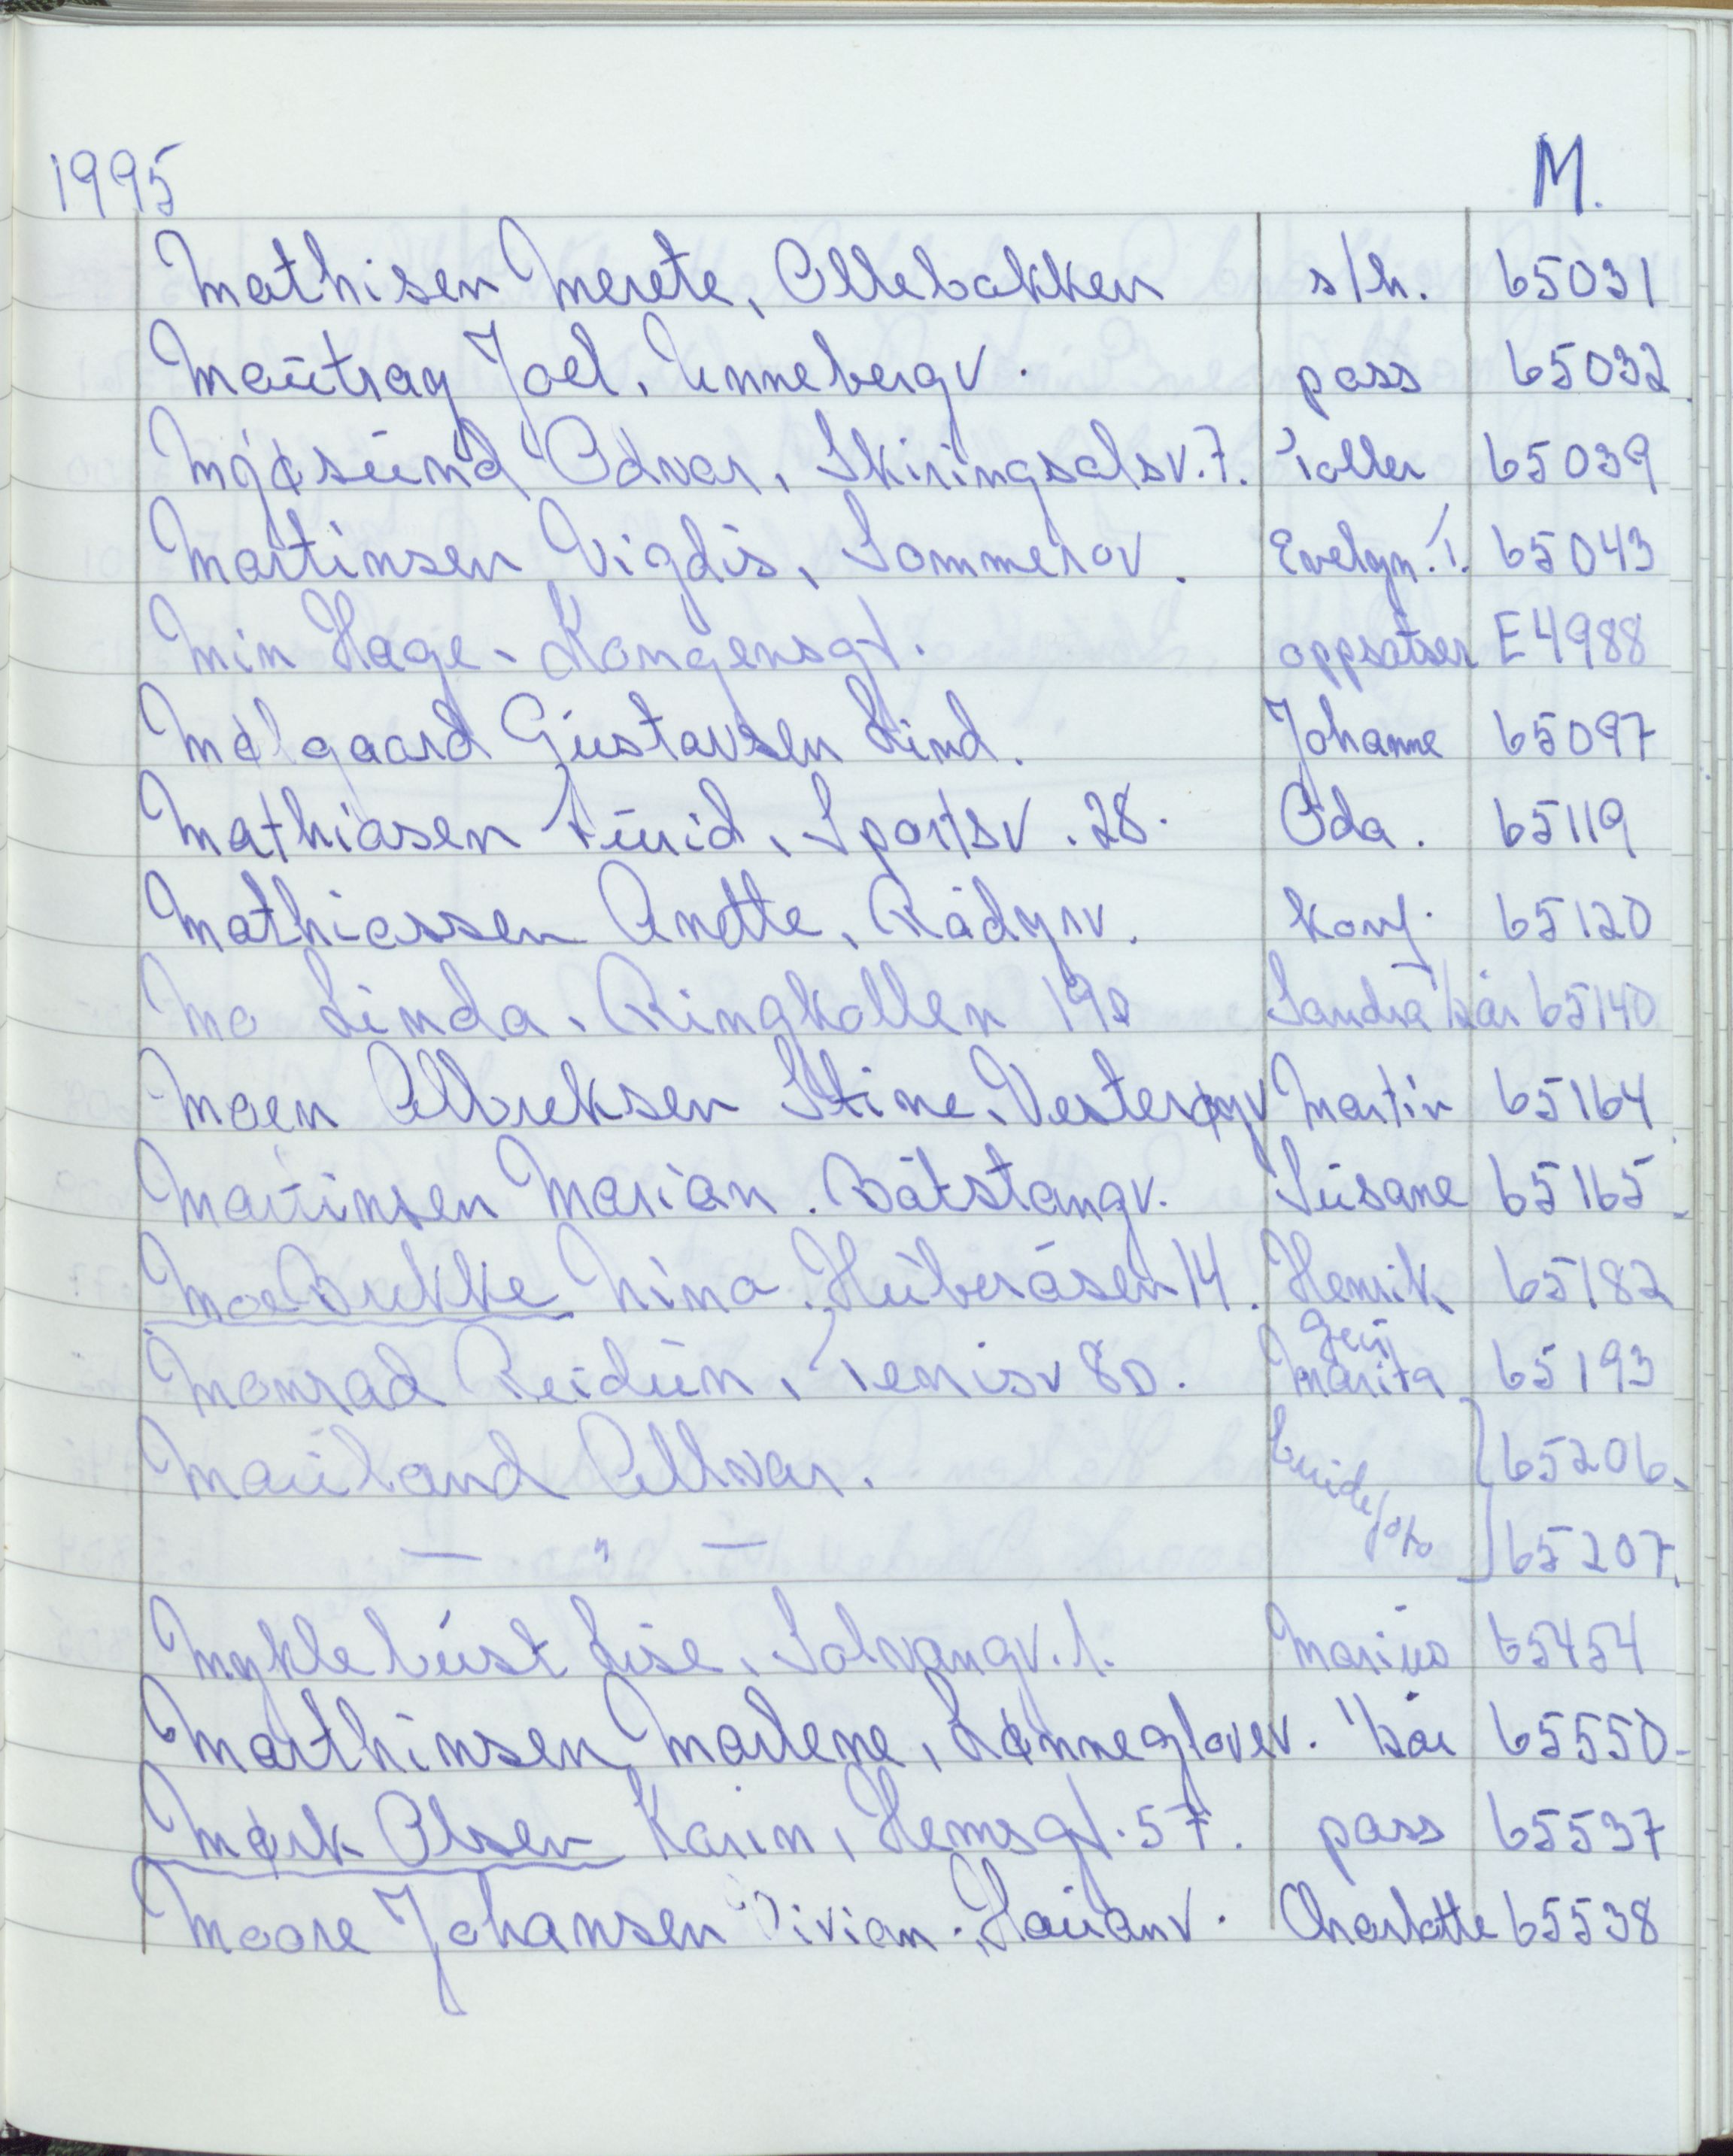 1995 M.
Mathisen Merete, Ollebakken s/h. 65031
Mautray Joel, Unnebergv. pass 65032
Mjøsund Odvar, Skiringsalsv. 7. Toller 65039
Martinsen Vigdis, Sommerov. Evelyn. T. 65043
Min Hage - Kongensgt. oppsatser E4988
Mølgaard Gustavsen Lind. Johanne 65097
Mathiasen Turid, Sportsv. 28. Oda. 65119
Mathiassen Anette, Rådyrv. konf. 65120
Mo Linda, Ringkollen 19D Sandra 1/2 år 65140
Moen Albreksen Stine, Vesterøyv Martin 65164
Martinsen Marian. Båtstangv. Susane 65165
Moe Brekke Nina. Huveråsen 14. Henrik 65182
Monrad Reidun, Tenisv 8D. Geir Marita 65193
Mauland Allvar. brude/oto 65206
— " — 65207.
Myklebust Lise, Solvangv. 1. Marius 65454
Marthinsen Marlene, Lønneglovev. 1/2 år 65550
Mørk Olsen Karin, Hemsgt. 57. pass 65537
Moore Johansen Vivian. Hauanv. Charlotte 65538